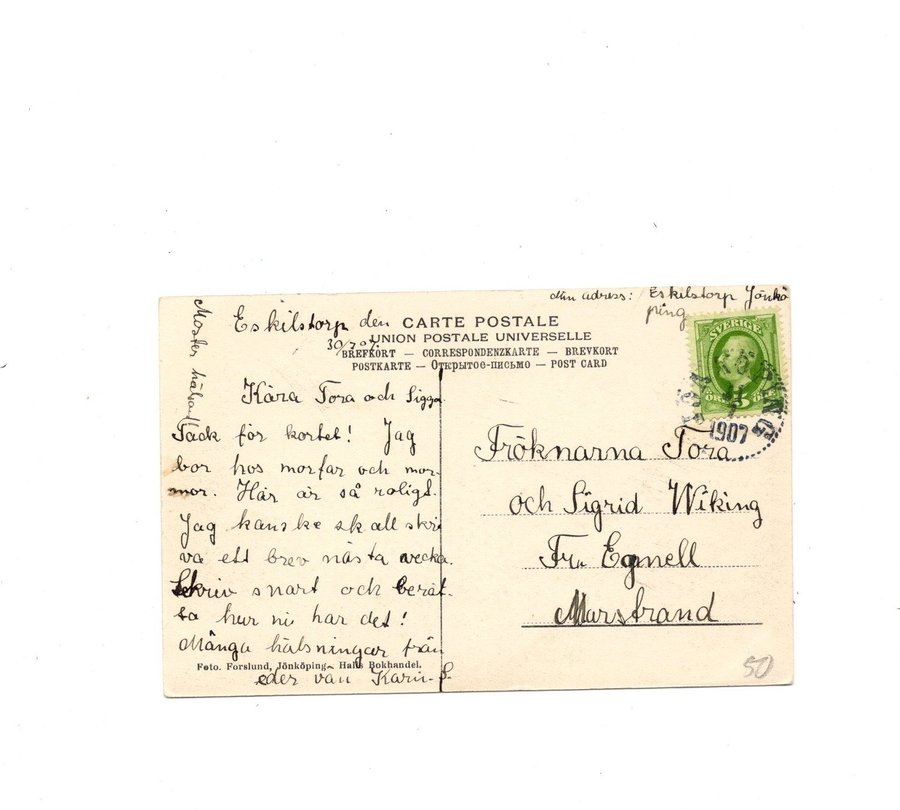 Min adress: Eskilstorp Jönkö
ping
Eskilstorp den
30/7 07.
CARTE POSTALE
UNION POSTALE UNIVERSELLE
BREFKORT — CORRESPONDENZKARTE — BREVKORT
POSTKARTE — Открытое-письмо — POST CARD
SVERIGE
5
1907
Moster hälsar!
Kära Tora och Sigga.
Tack för kortet! Jag
bor hos morfar och mor-
mor. Här är så roligt.
Jag kanske skall skri
va ett brev nästa vecka.
Skriv snart och berät-
ta hur ni har det!
Många hälsningar från
eder vän Karin S.
Foto. Forslund, Jönköping. Halls Bokhandel.
Fröknarna Tora
och Sigrid Wiking
Fru Egnell
Marstrand
50